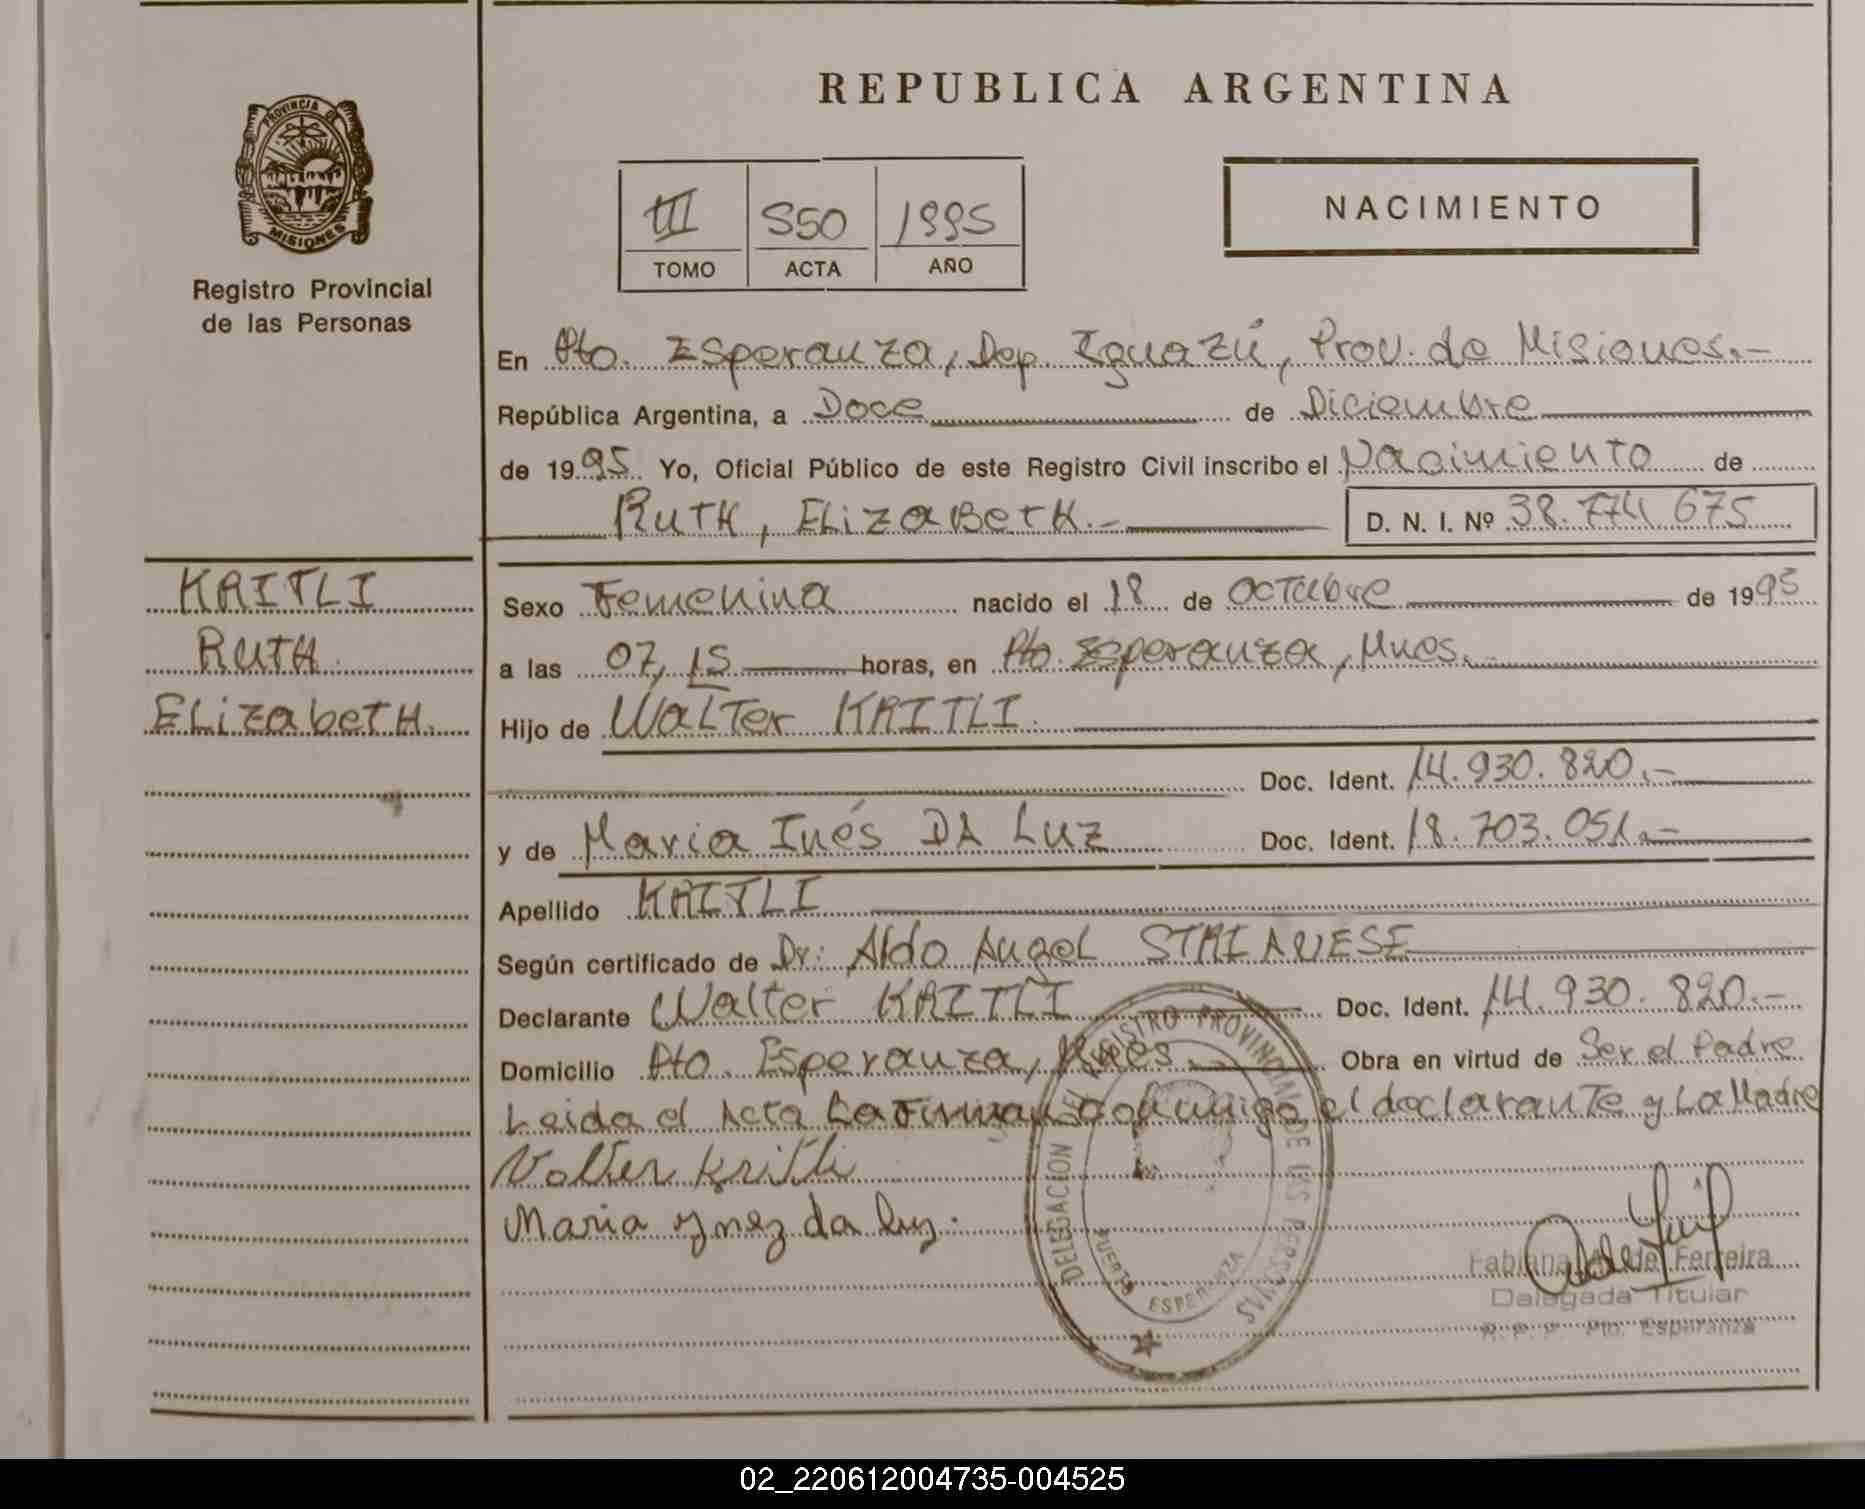 REPUBLICA ARGENTINA
PROVINCIA DE
MISIONES
Registro Provincial
de las Personas
III 550 1995
TOMO ACTA AÑO
NACIMIENTO
En Pto. Esperanza, Dep. Iguazú, Prov. de Misiones.-
República Argentina, a Doce de Diciembre
de 1995 Yo, Oficial Público de este Registro Civil inscribo el Nacimiento de
Ruth, Elizabeth.- D. N. I. Nº 38.774 675
KRITLI
Ruth
Elizabeth.
Sexo Femenina nacido el 18 de Octubre de 1995
a las 07,15 horas, en Pto. Esperanza, Mnes.
Hijo de Walter KRITLI.
Doc. Ident. 14.930.820.-
y de Maria Inés DA Luz Doc. Ident. 18.703.051.-
Apellido KRITLI
Según certificado de Dr: Aldo Angel
Declarante Walter KRITLI Doc. Ident. 14.930.820.-
Domicilio Pto. Esperanza, Mnes Obra en virtud de Ser el Padre
Leida el Acta La Firman conmigo el declarante y La Madre
Volter Kritli
Maria ynez da luz.
DELEGACION DEL REGISTRO PROVINCIAL DE LAS PERSONAS
PUERTO ESPERANZA
Fabiana de Ferreira
Delegada Titular
R. P. P. Pto. Esperanza
02_220612004735-004525